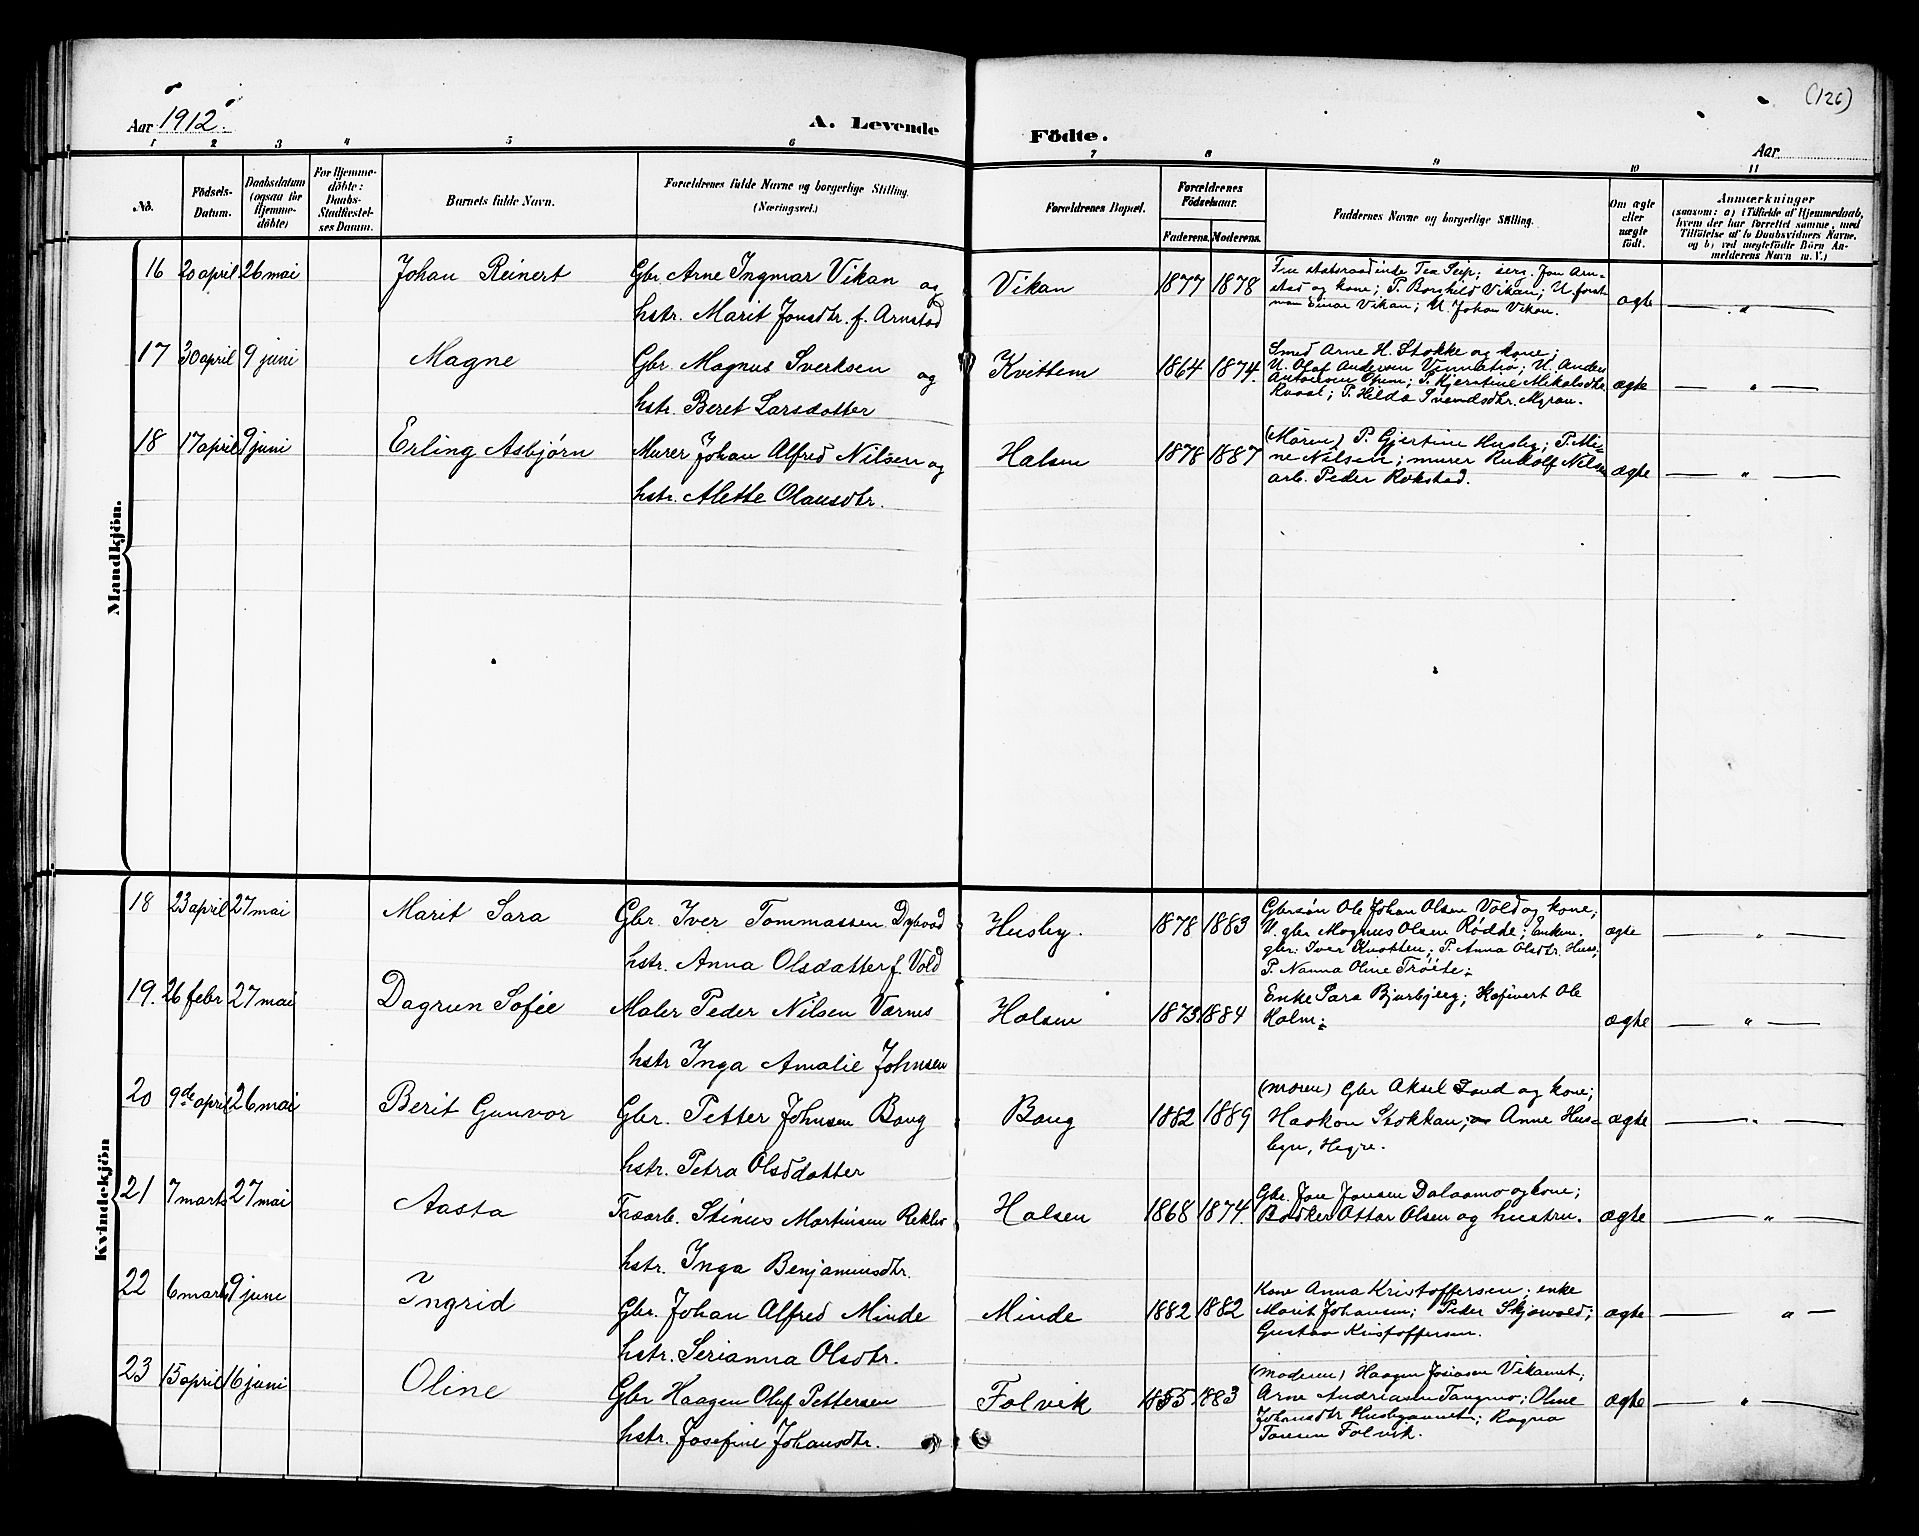 (126)
Aar 1912.
A. Levende Födte.
Aar
1 2 3 4 5 6 7 8 9 10 11
No.
Födsels-Datum.
Daabsdatum (ogsaa for Hjemme-döbte)
For Hjemme-döbte: Daabs-Stadfæstel-ses Datum.
Barnets fulde Navn.
Forældrenes fulde Navne og borgerlige Stilling. (Næringsvei.)
Forældrenes Bopæl.
Forældrenes Födselsaar.
Faderens. Moderens.
Faddernes Navne og borgerlige Stilling.
Om ægte eller uægte födt.
Anmærkninger
(saasom: a) i Tilfælde af Hjemmedaab,
hvem der har forrettet samme, med
Tilföielse af to Daabsvidners Navne,
og b) ved uægtefödte Börn An-
melderens Navn m. V.)
Mandkjön.
16 20 april 26 mai Johan Reinert Gbr. Arne Ingmar Vikan og
hstr. Marit Jonsdtr. f. Arnstad
Vikan 1877 1878
Fru statsraadinde Tea Seip; serg. Jon Arn-
stad og kone; P. Borghild Vikan; U. forst-
man Einar Vikan; U. Johan Vikan.
ægte — " —
17 30 april 9 juni Magne Gbr. Magnus Sverksen og
hstr. Beret Larsdatter
Kvittem 1864 1874.
Smed Arne H. Stokke og kone;
U. Olaf Andersen ; U. Anders
Antonsen ; P. Kjerstine Mikalsdtr.
; P. Hilda Svendsdtr. Myran.
ægte — " —
18 17 april 9 juni Erling Asbjørn Murer Johan Alfred Nilsen og
hstr. Alette Olausdtr.
Halsen 1878 1887
(Moren) P. Gjertine Husby; P. Mi-
ne Nilsen; murer Rudolf Nilsen
arb. Peder Rokstad.
ægte — " —
Kvindekjön
18 23 april 27 mai Marit Sara Gbr. Iver Tommassen Dybvad
hstr. Anna Olsdatter f. Vold
Husby. 1878 1883
Gbrsøn Ole Johan Olsen Vold og kone;
U. gbr Magnus Olsen Rødde; Enkem.
gbr. Iver Knotten; P. Anna Olsdtr. Husb;
P. Nanna Oline Trøite.
ægte — " —
19. 26 febr 27 mai Dagrun Sofie Maler Peder Nilsen Værnes
hstr Inga Amalie Johnsen
Halsen 1873 1884
Enke Sara Bjurbjerg; Kafivert Ole
Holm.
ægte — " —
20 9de april 26 mai Berit Gunvor Gbr. Petter Johnsen Baug
hstr. Petra Olsdatter
Baug 1882 1889
(moren) Gbr Aksel Sand og kone;
Haakon Stokkan; Anne Hus-
byn, Hegre.
ægte — " —
21 7 marts 27 mai Aasta Træarb. Stinus Martinsen
hstr. Inga Benjaminsdtr.
Halsen 1868 1874.
Gbr. Jon Jonsen Dalaamo og kone;
Bødker Ottar Olsen og hustru.
ægte — " —
22 6 marts 9 juni Ingrid Gbr. Johan Alfred Minde
hstr. Serianna Olsdtr.
Minde 1882 1882
Kone Anna Kristoffersen; enke
Marit Johansen; Peder Skjævold;
Gustav Kristoffersen.
ægte — " —
23 15 april 16 juni Oline Gbr Haagen Oluf Pettersen
hstr. Josefine Johansdtr.
Folvik 1855 1883
(Moderen) Haagen Vikanet;
Arne Andreasen Tangmo; Oline
Johansdtr Husbyaunet; Ragna
Folvik.
ægte — " —